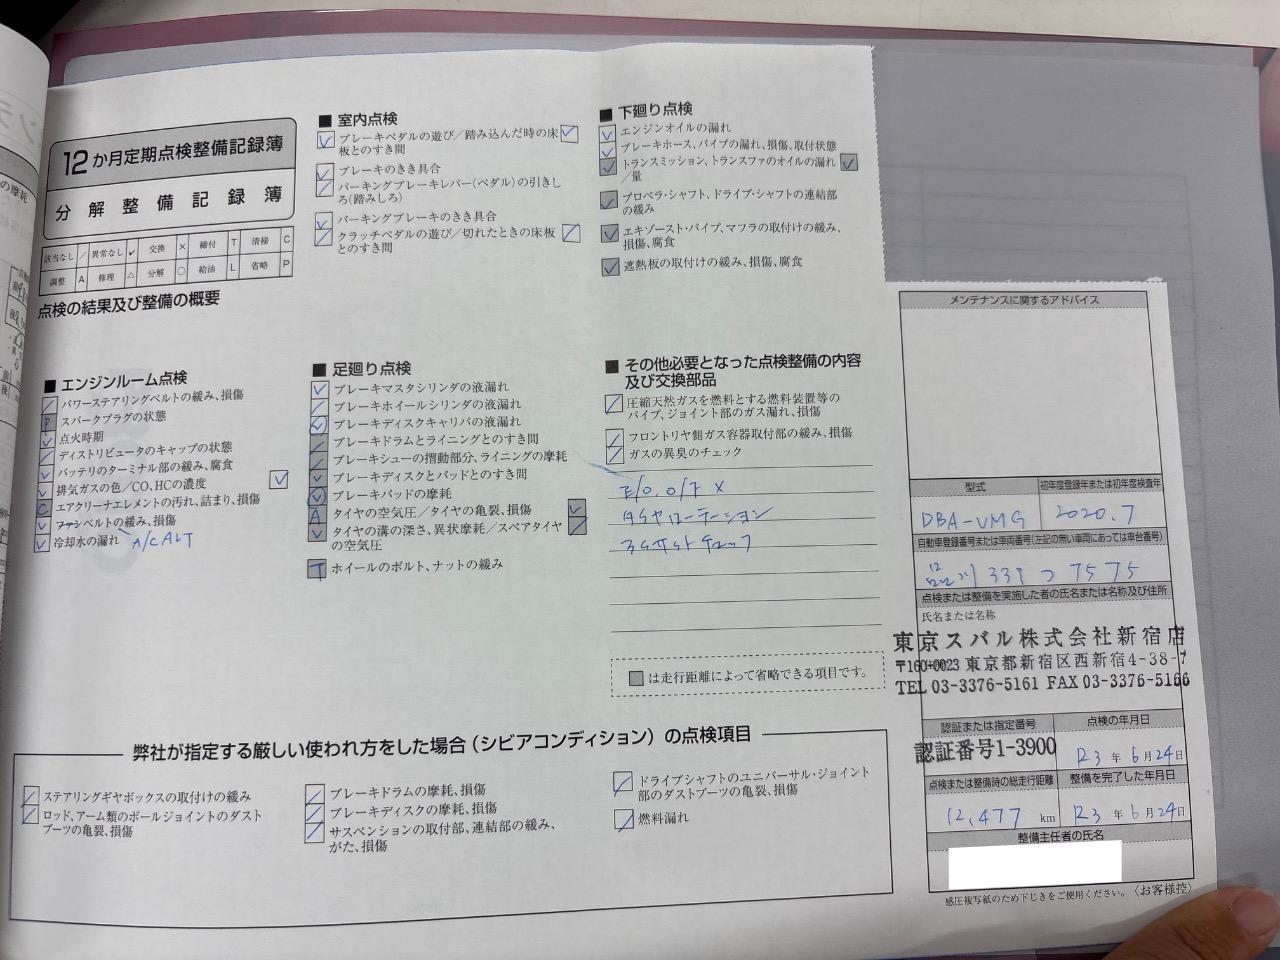 12か月定期点検整備記録簿
分解整備記録簿
該当なし ／ 異常なし ✓ 交換 × 締付 T 清掃 C
調整 A 修理 △ 分解 ○ 給油 L 省略 P
点検の結果及び整備の概要
■ エンジンルーム点検
パワーステアリングベルトの緩み、損傷
スパークプラグの状態
点火時期
ディストリビュータのキャップの状態
バッテリのターミナル部の緩み、腐食
排気ガスの色／CO、HCの濃度
エアクリーナエレメントの汚れ、詰まり、損傷
ファンベルトの緩み、損傷
冷却水の漏れ
A/C ALT
■ 室内点検
ブレーキペダルの遊び／踏み込んだ時の床
板とのすき間
ブレーキのきき具合
パーキングブレーキレバー（ペダル）の引きし
ろ（踏みしろ）
パーキングブレーキのきき具合
クラッチペダルの遊び／切れたときの床板
とのすき間
■ 足廻り点検
ブレーキマスタシリンダの液漏れ
ブレーキホイールシリンダの液漏れ
ブレーキディスクキャリパの液漏れ
ブレーキドラムとライニングとのすき間
ブレーキシューの摺動部分、ライニングの摩耗
ブレーキディスクとパッドとのすき間
ブレーキパッドの摩耗
タイヤの空気圧／タイヤの亀裂、損傷
タイヤの溝の深さ、異状摩耗／スペアタイヤ
の空気圧
ホイールのボルト、ナットの緩み
■ 下廻り点検
エンジンオイルの漏れ
ブレーキホース、パイプの漏れ、損傷、取付状態
トランスミッション、トランスファのオイルの漏れ
／量
プロペラ・シャフト、ドライブ・シャフトの連結部
の緩み
エキゾースト・パイプ、マフラの取付けの緩み、
損傷、腐食
遮熱板の取付けの緩み、損傷、腐食
■ その他必要となった点検整備の内容
及び交換部品
圧縮天然ガスを燃料とする燃料装置等の
パイプ、ジョイント部のガス漏れ、損傷
フロントリヤ側ガス容器取付部の緩み、損傷
ガスの異臭のチェック
E/O.O/F ×
タイヤローテーション
は走行距離によって省略できる項目です。
弊社が指定する厳しい使われ方をした場合（シビアコンディション）の点検項目
ステアリングギヤボックスの取付けの緩み
ロッド、アーム類のボールジョイントのダスト
ブーツの亀裂、損傷
ブレーキドラムの摩耗、損傷
ブレーキディスクの摩耗、損傷
サスペンションの取付部、連結部の緩み、
がた、損傷
ドライブシャフトのユニバーサル・ジョイント
部のダストブーツの亀裂、損傷
燃料漏れ
メンテナンスに関するアドバイス
型式
初年度登録年または初年度検査年
DBA-VMG 2020.7
自動車登録番号または車両番号（左記の無い車両にあっては車台番号）
品川 339 つ 7575
点検または整備を実施した者の氏名または名称及び住所
氏名または名称
東京スバル株式会社新宿店
〒160-0023 東京都新宿区西新宿4-38-7
TEL 03-3376-5161 FAX 03-3376-5166
認証または指定番号
点検の年月日
認証番号1-3900
R3年6月24日
点検または整備時の総走行距離
整備を完了した年月日
12,477 km
R3年6月24日
整備主任者の氏名
感圧複写紙のため下じきをご使用ください。〈お客様控〉